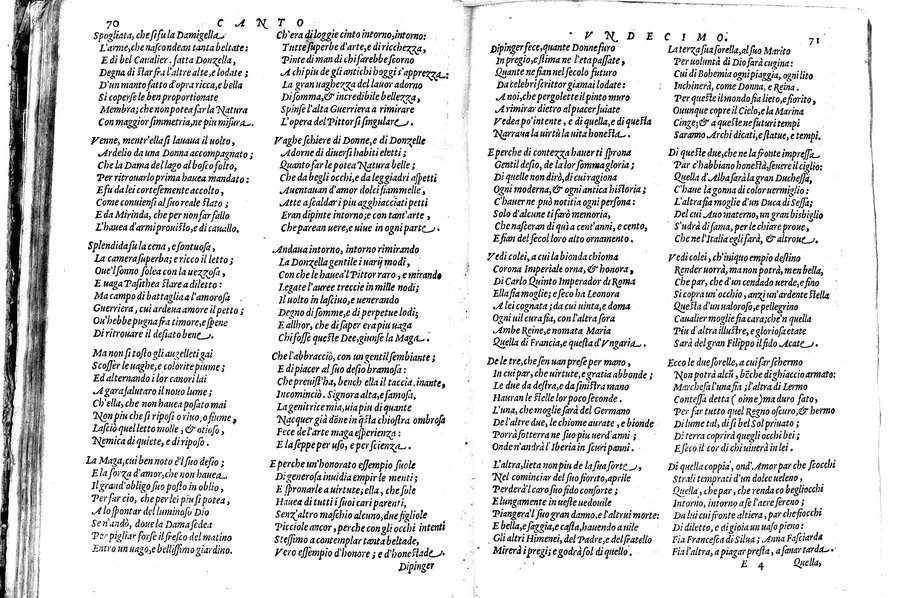 70
CANTO
Spogliata, che si fu la Damigella
L'arme, che nascondean tanta beltate:
E di bel Cavalier. fatta Donzella,
Degna di star fra l'altre alte, e lodate;
D'un manto fatto d'opra ricca, e bella
Si coperse le ben proportionate
Membra; che non potea far la Natura
Con maggior simmetria, ne piu misura.
Venne, mentr'ella si lauaua il uolto,
Ardelio da una Donna accompagnato;
Che la Dama del lago al bosco folto,
Per ritrouarlo prima hauea mandato:
E fu da lei cortesemente accolto,
Come conuiensi al suo reale stato;
E da Mirinda, che per non far fallo
L'hauea d'armi prouisto, e di cauallo.
Splendida fu la cena, e sontuosa,
La camera superba; e ricco il letto;
Oue'l sonno solea con la uezzosa,
E uaga Pasithea stare a diletto:
Ma campo di battaglia a l'amorosa
Guerriera, cui ardeua amore il petto;
Ou'hebbe pugna fra timore, e spene
Di ritrouare il desiato bene.
Ma non si tosto gli augelleti gai
Scosser le uaghe, e colorite piume;
Ed alternando i lor canori lai
A gara salutaro il nouo lume;
Ch'ella, che non hauea posato mai
Non piu che si riposi o riuo, o fiume,
Lasciò quel letto molle, & otioso,
Nemica di quiete, e di riposo.
La Maga, cui ben noto è'l suo desio;
E la forza d'amor, che non hauea
Il grand'obligo suo posto in oblio,
Per far cio, che per lei piu si potea,
A lo spontar del luminoso Dio
Se n'andò, doue la Dama sedea
Per pigliar forse il fresco del matino
Entro un uago, e bellissimo giardino.
Ch'era di loggie cinto intorno, intorno:
Tutte superbe d'arte, e di ricchezza,
Pinte di man di chi farebbe scorno
A chi piu de gli antichi hoggi s'apprezza:
La gran uaghezza del lauor adorno
Di somma, & incredibile bellezza,
Spinse l'alta Guerriera a rimirare
L'opera del Pittor si singulare.
Vaghe schiere di Donne, e di Donzelle
Adorne di diuersi habiti eletti;
Quanto far le potea Natura belle;
Che da begli occhi, e da leggiadri aspetti
Auentauan d'amor dolci fiammelle,
Atte a scaldar i piu agghiacciati petti
Eran dipinte intorno; e con tant'arte,
Che parean uere, e uiue in ogni parte.
Andaua intorno, intorno rimirando
La Donzella gentile i uarij modi,
Con che le hauea'l Pittor raro, e mirando
Legate l'auree treccie in mille nodi;
Il uolto in lasciuo, e uenerando
Degno di somme, e di perpetue lodi;
E allhor, che di saper era piu uaga
Chi fosser queste Dee, giunse la Maga.
Che l'abbracciò, con un gentil sembiante;
E di piacer al suo desio bramosa:
Che preuist'ha, bench ella il taccia, inante,
Incominciò. Signora alta, e famosa,
La genitrice mia, uia piu di quante
Nacquer già done in q̃sta chiostra ombrosa
Fece de l'arte maga esperienza:
E la seppe per uso, e per scienza.
E perche un'honorato essempio suole
Di generosa inuidia empir le menti;
E spronarle a uirtute; ella, che sole
Hauea di tutti i suoi cari parenti,
Senz'altro maschio alcuno, due figliole
Picciole ancor, perche con gli occhi intenti
Stessimo a contemplar tanta beltade,
Vero essempio d'honore; e d'honestade.
Dipinger
VNDECIMO.
71
Dipinger fece, quante Donne furo
In pregio, e stima ne l'eta passate,
Quante ne fian nel secolo futuro
Da celebri scrittor giamai lodate:
A noi, che pergolette il pinto muro
A rimirar dietro al piacer fuiate
Vedea po'intente, e di quella, e di questa
Narraua la uirtù la uita honesta.
E perche di contezza hauer ti sprona
Gentil desio, de la lor somma gloria;
Di quelle non dirò, di cui ragiona
Ogni moderna, & ogni antica historia;
C'hauer ne può notitia ogni persona:
Solo d'alcune ti farò memoria,
Che nasceran di quì a cent'anni, e cento,
E fian del secol loro alto ornamento.
Vedi colei, a cui la bionda chioma
Corona Imperiale orna, & honora,
Di Carlo Quinto Imperador di Roma
Ella fia moglie; e seco ha Leonora
A lei cognata; da cui uinta, e doma
Ogni uil cura fia, con l'altra sora
Ambe Reine, e nomata Maria
Quella di Francia, e questa d'Vngaria.
De le tre, che sen uan prese per mano,
In cui par, che uirtute, e gratia abbonde;
Le due da destra, e da sinistra mano
Hauran le stelle lor poco seconde.
L'una, che moglie sarà del Germano
De l'altre due, le chiome aurate, e bionde
Porrà sotterra ne suo piu uerd'anni;
Onde n'andrà l'Iberia in scuri panni.
L'altra, lieta non piu de la sua sorte,
Nel cominciar del suo fiorito, aprile
Perderà'l caro suo fido consorte;
E lungamente in ueste uedouile
Piangerà'l suo gran danno, e l'altrui morte:
E bella, e saggia, e casta, hauendo a uile
Gli altri Himenei, del Padre, e del fratello
Mirerà i pregi; e godrà sol di quello.
La terza sua sorella, al suo Marito
Per uoluntà di Dio sarà cugina:
Cui di Bohemia ogni piaggia, ogni lito
Inchinerà, come Donna, e Reina.
Per queste il mondo fia lieto, e fiorito,
Ouunque copre il Cielo, e la Marina
Cinge; & a queste ne futuri tempi
Saranno Archi dicati, e statue, e tempi.
Di queste due, che ne la fronte impressa
Par c'habbiano honestà, seuere il ciglio:
Quella d'Alba sarà la gran Duchessa,
C'haue la gonna di color uermiglio:
L'altra fia moglie d'un Duca di Sessa;
Del cui Auo materno, un gran bisbiglio
S'udrà di fama, per le chiare proue,
Che ne l'Italia egli sarà, & altroue.
Vedi colei, ch'iniquo empio destino
Render uorrà, ma non potrà, men bella,
Che par, che d'un cendado uerde, e fino
Si copra un'occhio, anzi un'ardente stella
Questa d'un ualoroso, e pellegrino
Caualier moglie fia cara; che'n quella
Piu d'altra illustre, e gloriosa etate
Sarà del gran Filippo il fido Acate.
Ecco le due sorelle, a cui far schermo
Non potrà alcū, bẽche di ghiaccio armato:
Marchesa l'una fia; l'altra di Lermo
Contessa detta (oime) ma duro fato,
Per far tutto quel Regno oscuro, & hermo
Di lume tal, di sì bel Sol priuato;
Di terra coprirà quegli occhi bei;
E seco il cor di chi uiuerà in lei.
Di quella coppia, ond'Amor par che scocchi
Strali temprati d'un dolce ueleno,
Quella, che par, che renda co begliocchi
Intorno, intorno a se l'aere sereno;
Da lui cui fronte altiera, par che fiocchi
Di diletto, e di gioia un uaso pieno:
Fia Francesca di Silua; Anna Fasciarda
Fia l'altra, a piagar presta, a sanar tarda.
E 4
Quella,